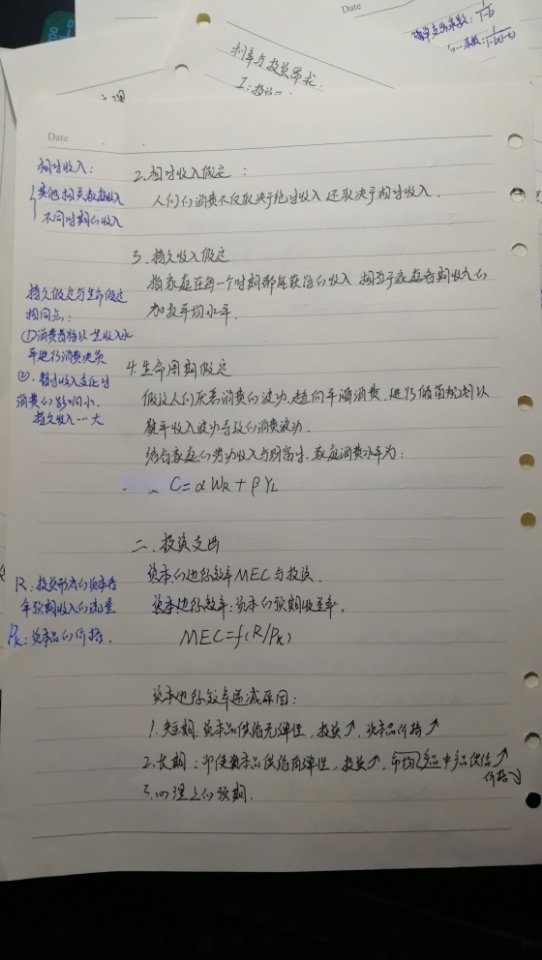 Date
Date
利率与投资需求:
1. 投
简单支出乘数: 1/1-b
乘数: 1/1-b(1-t)
相对收入:
其他相关家庭收入
不同时期的收入
2. 相对收入假定:
人们的消费不仅取决于绝对收入还取决于相对收入.
3. 持久收入假定
指家庭在每一个时期都能获得的收入 相当于家庭各期收入的
加权平均水平.
持久假定与生命假定
相同点:
①消费者将以一生收入水
平进行消费决策
②. 暂时收入变化对
消费的影响小.
持久收入一大
4. 生命周期假定
假设人们厌恶消费的波动, 趋向平滑消费, 进行储蓄规划以
熨平收入波动导致的消费波动.
结合家庭的劳动收入与财富, 家庭消费水平为:
C=αWR+βYL
二、投资支出
资本的边际效率MEC与投资.
资本边际效率: 资本的预期收益率.
MEC=f(R/Pk)
R: 投资形成的资本各
年预期收入的流量
Pk: 资本品的价格.
资本边际效率递减原因:
1. 短期: 资本品供给无弹性, 投资↑, 资本品价格↑
2. 长期: 即使资本品供给有弹性, 投资↑, 产品供给↑
价格↓
3. 心理上的预期.